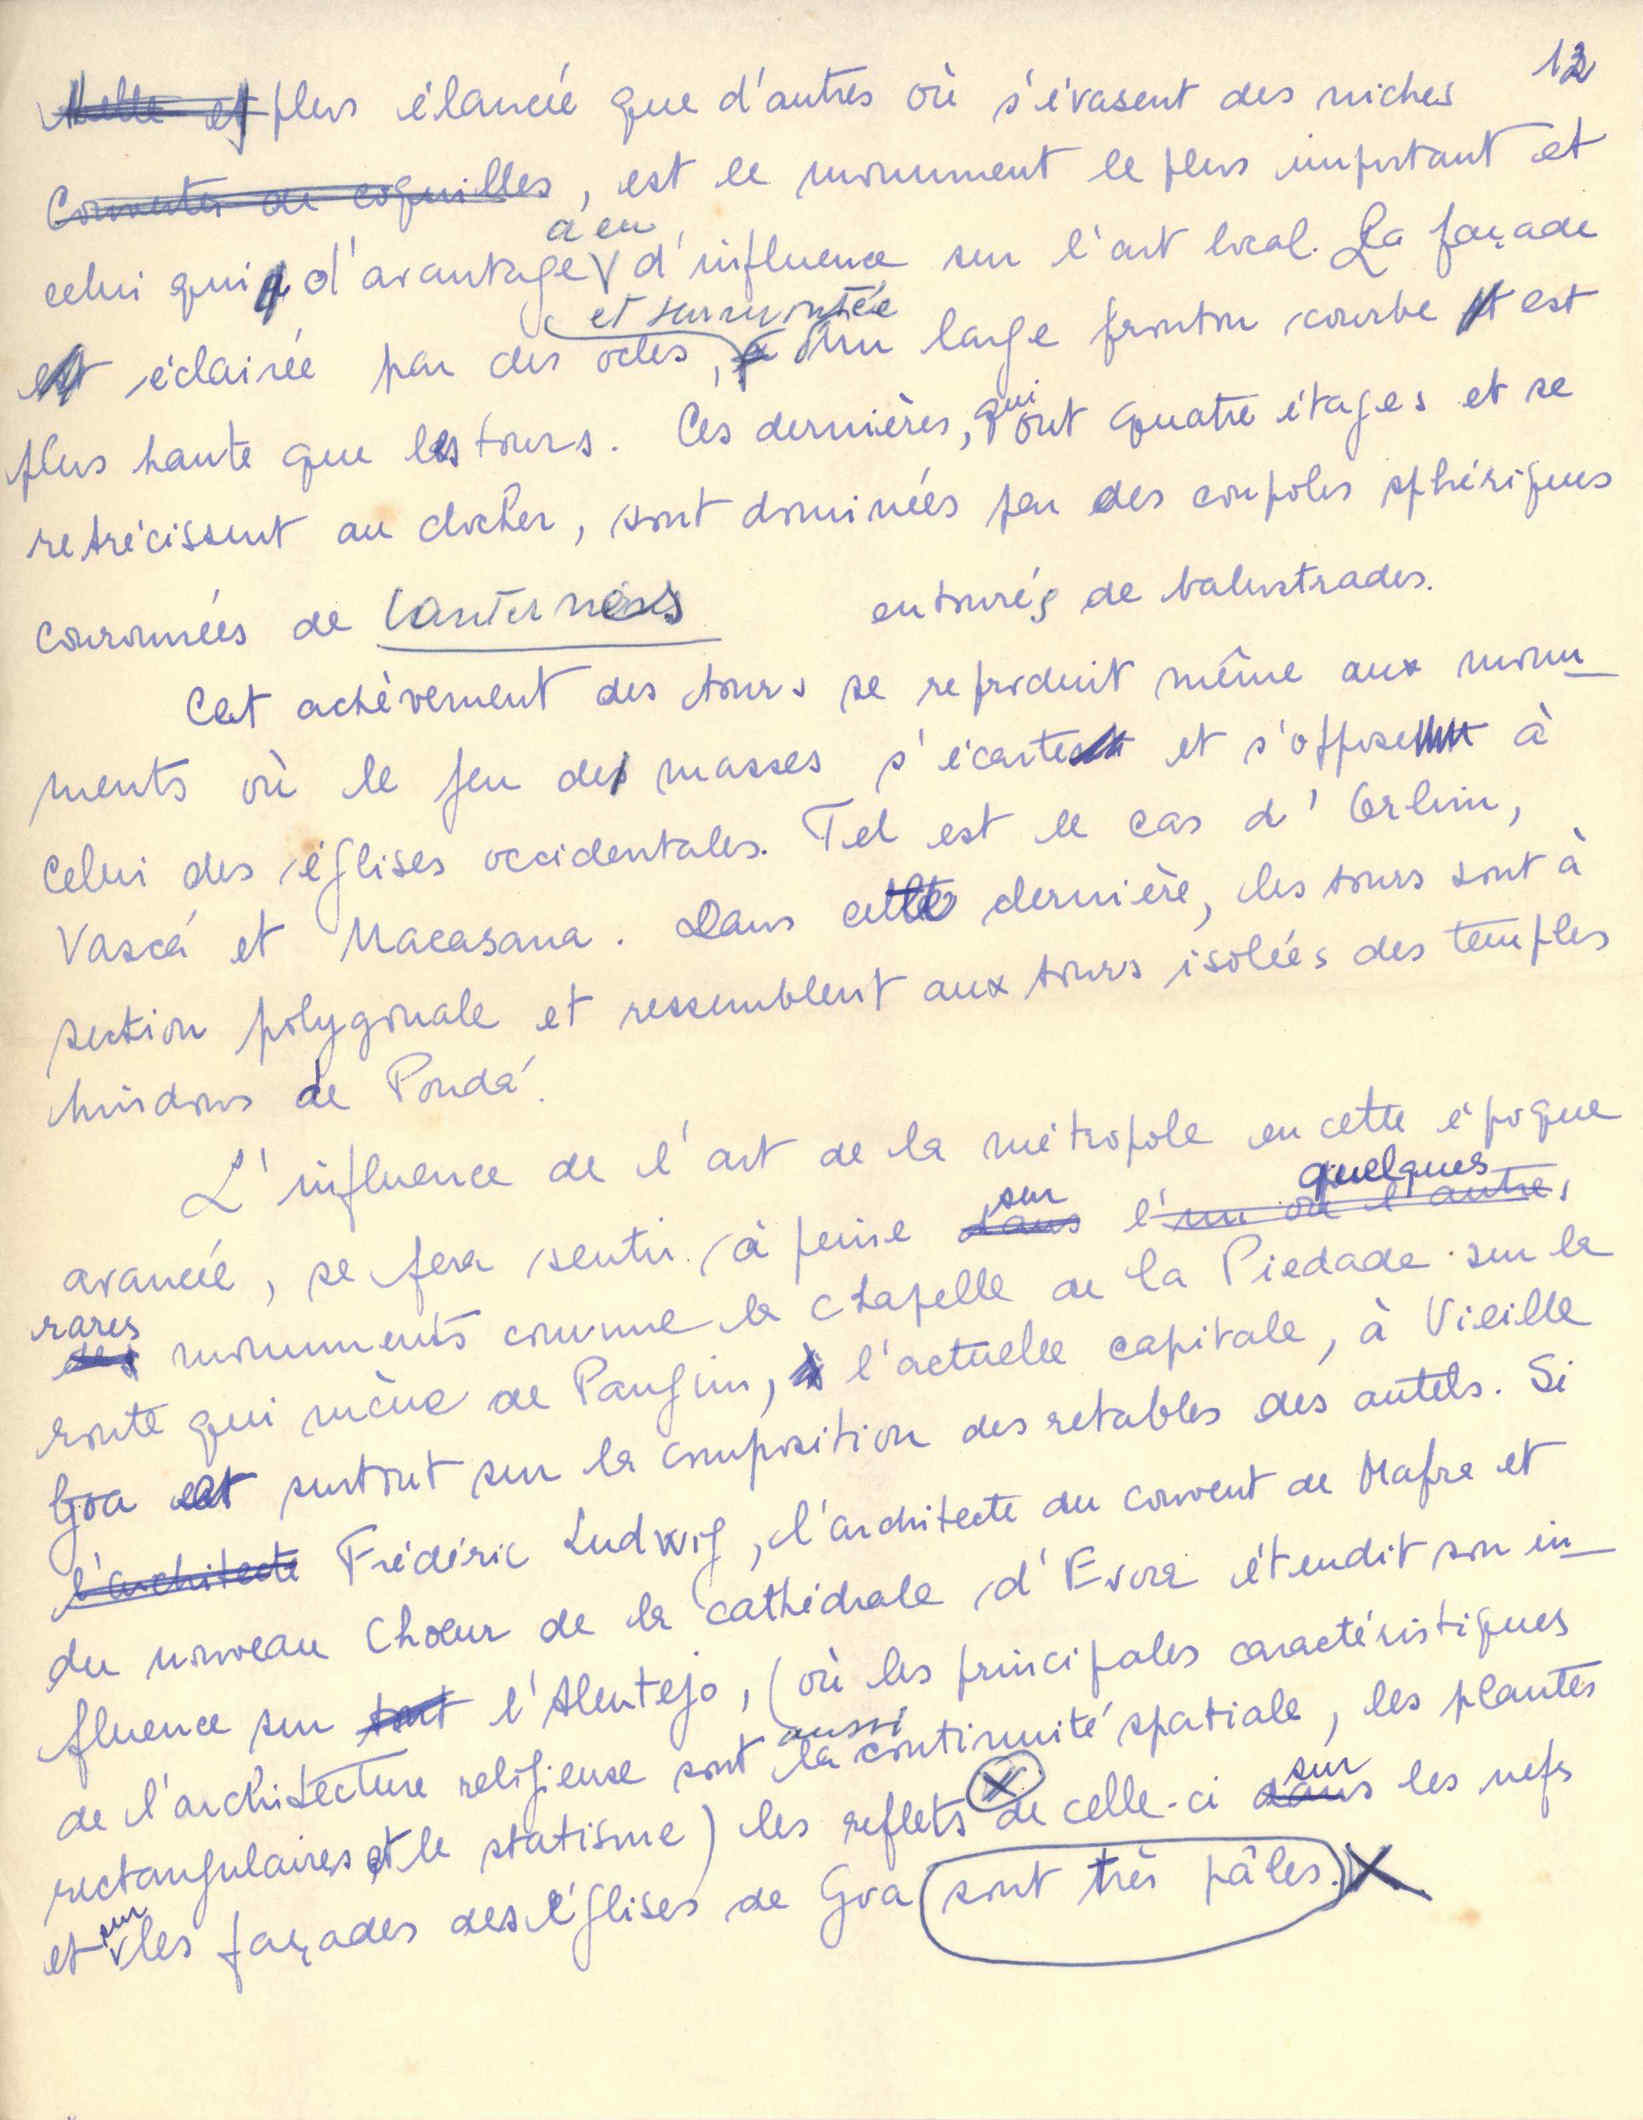 12
plus élancée que d'autres où s'évasent des niches
Couvertes de coquilles, est le monument le plus important et
à eu
celui qui d'avantage V d'influence sur l'art local. La façade
et surmontée
est éclairée par des ocles, d'un large fronton courbe et est
plus haute que les tours. Ces dernières, qui ont quatre étages et se
retrécissent au clocher, sont dominées par des coupoles sphériques
couronnées de lanternons entourés de balustrades.
Cet achèvement des tours se reproduit même aux monu_
ments où le jeu des masses s'écarte et s'oppose à
celui des églises occidentales. Tel est le cas d'Orlim,
Vascá et Macasana. Dans cette dernière, les tours sont à
section polygonale et ressemblent aux tours isolées des temples
hindous de Pondá.
L'influence de l'art de la métropole en cette époque
sur quelques
avancée, se fera sentir à peine dans l'un ou l'autre,
rares
des monuments comme la chapelle de la Piedade sur la
route qui mène de Pangim, l'actuelle capitale, à Vieille
Goa et surtout sur la composition des retables des autels. Si
l'architecte Frédéric Ludwig, l'architecte du couvent de Mafra et
du nouveau Choeur de la cathédrale d'Evora étendit son in_
fluence sur tout l'Alentejo, (où les principales caractéristiques
aussi
de l'architecture religieuse sont la continuité spatiale, les plantes
X sur
rectangulaires et le statisme) les reflets de celle-ci dans les nefs
sur
et V les façades des églises de Goa sont très pâles. X